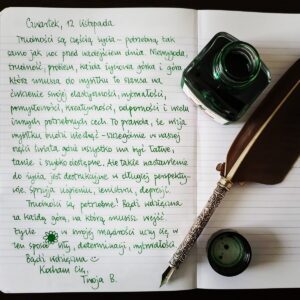 Czwartek, 12 listopada
Trudności są częścią życia – potrzebną tak
samo jak noc przed nadejściem dnia. Niewygoda,
trudność, problem, każda życiowa górka i góra
która zmusza do wysiłku to szansa na
ćwiczenie swojej elastyczności, wytrwałości,
pomysłowości, kreatywności, odporności i wielu
innych potrzebnych cech. To prawda, że mija
wysiłku ludzi wiedząc – szczególnie w naszej
części świata, gdzie wszystko ma być łatwe,
tanie i szybko dostępne. Ale takie nastawienie
do życia jest destrukcyjne w dłuższej perspektywie.
Sprzyja uśpieniu, lenistwu, depresji.
Trudności są potrzebne! Bądź wdzięczna
za każdą górę, na którą musisz wejść.
Życie w swojej mądrości uczy się w
ten sposób siły, determinacji, wytrwałości
Bądź wdzięczna
Kocham Cię,
Twoja B.